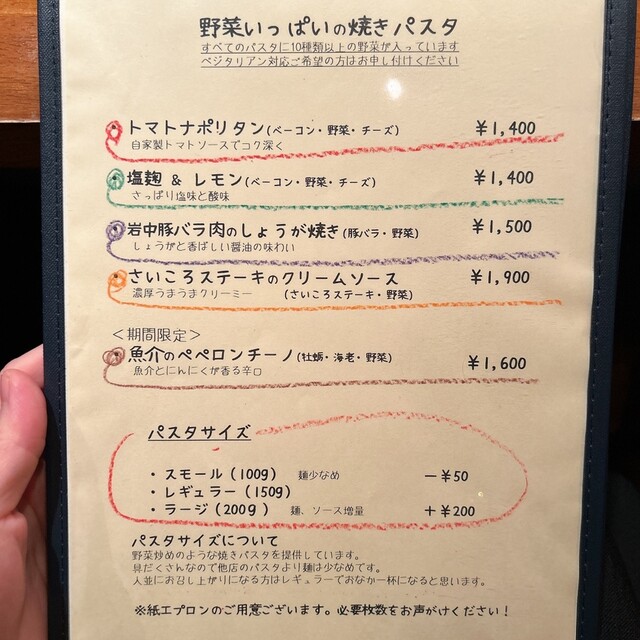 野菜いっぱいの焼きパスタ
すべてのパスタに10種類以上の野菜が入っています
ベジタリアン対応ご希望の方はお申し付けください
トマトナポリタン(ベーコン・野菜・チーズ) ¥1,400
自家製トマトソースでコク深く
塩麹 & レモン(ベーコン・野菜・チーズ) ¥1,400
さっぱり塩味と酸味
岩中豚バラ肉のしょうが焼き(豚バラ・野菜) ¥1,500
しょうがと香ばしい醤油の味わい
さいころステーキのクリームソース ¥1,900
濃厚うまうまクリーミー (さいころステーキ・野菜)
<期間限定>
魚介のペペロンチーノ(牡蛎・海老・野菜) ¥1,600
魚介とにんにくが香る辛口
パスタサイズ
・スモール(100g) 麺少なめ -¥50
・レギュラー(150g)
・ラージ(200g) 麺、ソース増量 +¥200
パスタサイズについて
野菜炒めのような焼きパスタを提供しています。
具だくさんなので他店のパスタより麺は少なめです。
人並にお召し上がりになる方はレギュラーでおなか一杯になると思います。
※紙エプロンのご用意ございます。必要枚数をお声がけください!